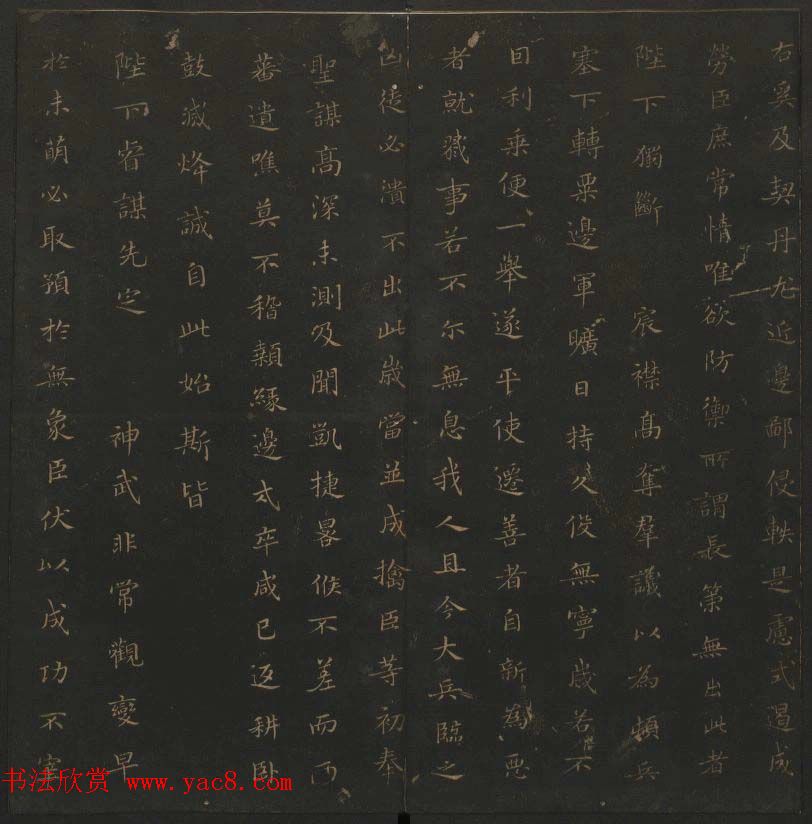 右奚及契丹尤近邊鄙侵軼是慮式遏成
勞臣庶常情唯欲防禦所謂長策無出此者
陛下獨斷 宸襟高奪羣議以為頓兵
塞下轉粟邊軍曠日持久役無寧歲若不
因利乗便一舉遂平使遷善者自新為惡
者就殱事若不尓無息我人且今大兵臨之
凶徒必潰不出此歲當並成擒臣等初奉
聖謀高深未測及聞凱捷晷候不差而西
蕃遺噍莫不稽顙緣邊戎卒咸已返耕卧
鼓滅烽誠自此始斯皆
陛下睿謀先定 神武非常觀變早
於未萌必取預於無象臣伏以成功不宰
书法欣赏 www.yac8.com